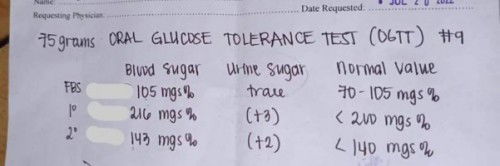 Name:
Requesting Physician: Date Requested: JUL 20 2022
75 grams ORAL GLUCOSE TOLERANCE TEST (OGTT) #9
Blood Sugar Urine Sugar Normal Value
FBS 105 mgs% trace 70-105 mgs%
1° 216 mgs% (+3) < 200 mgs%
2° 143 mgs% (+2) < 140 mgs%